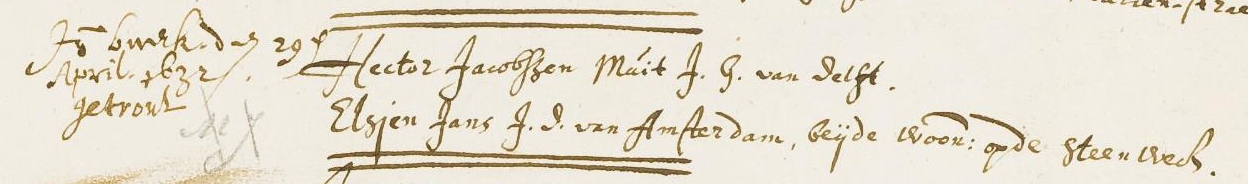 In de kerk den 29.
April. 1632.
getrout
Hector Jacobszen Muit J. G. van delft.
Elsjen Jans J. d. van Amsterdam, beijde woon: op de steen wech.